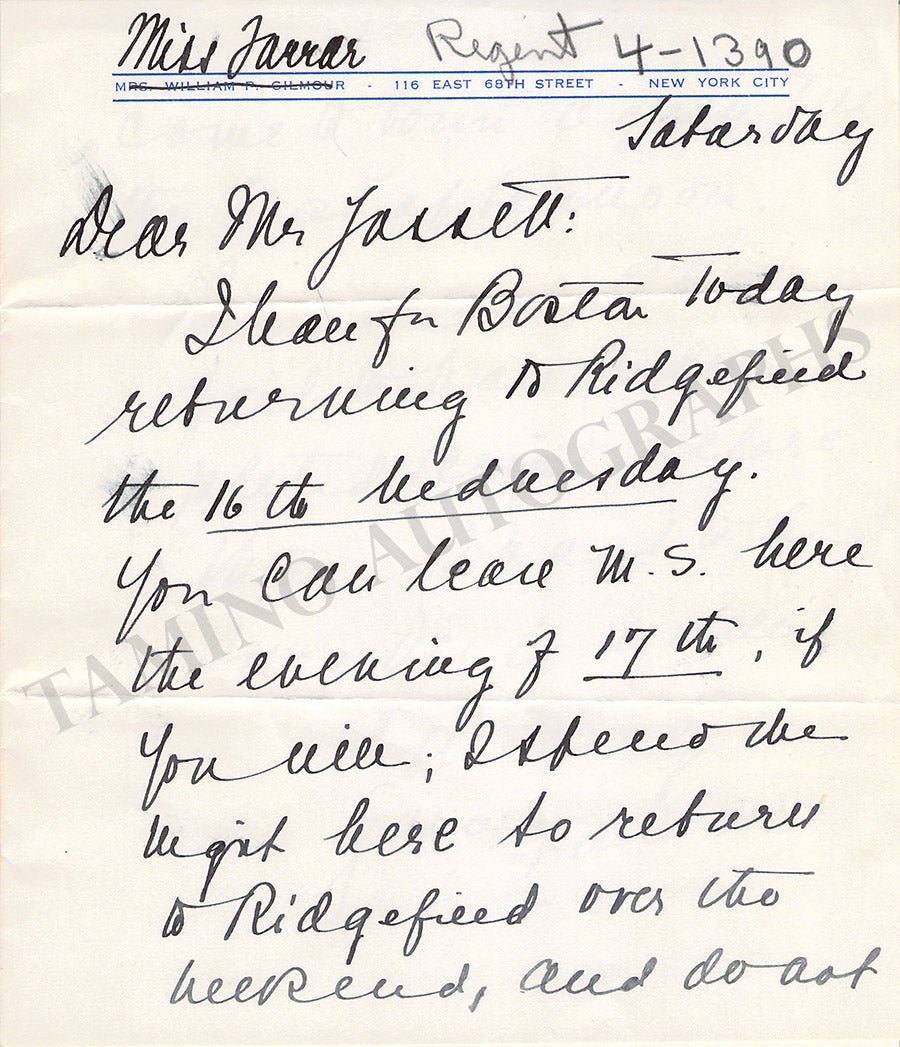 Miss Farrar Regent 4-1390
MRS. WILLIAM P. GILMOUR - 116 EAST 68TH STREET - NEW YORK CITY
Saturday
Dear Mr
I leave for Boston Today
returning to Ridgefield
the 16th Wednesday.
You can leave M.S. here
the evening of 17th, if
you will; I spend the
night here to return
to Ridgefield over the
weekend, and do not
TAMINO AUTOGRAPHS